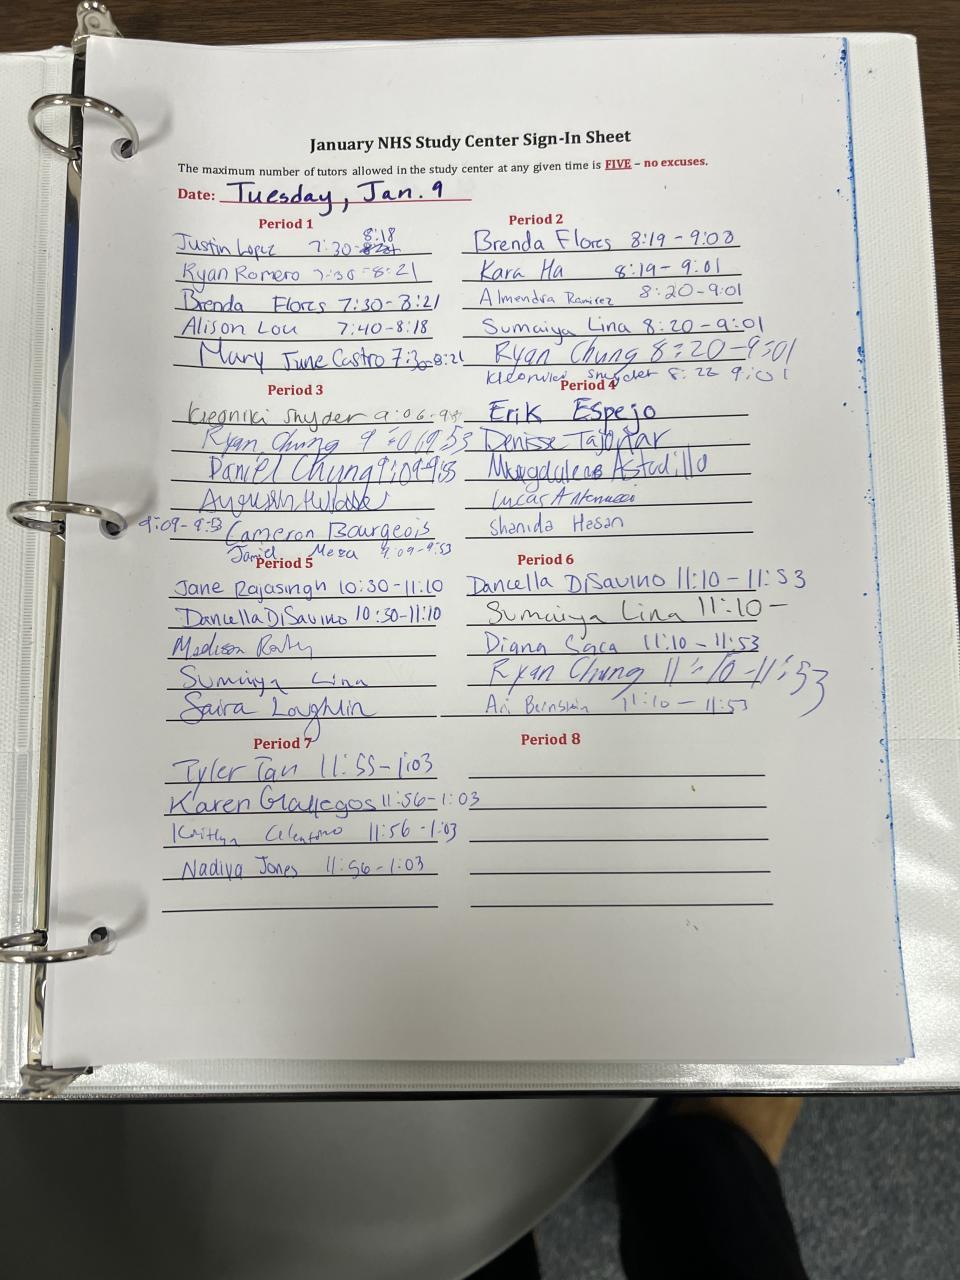 January NHS Study Center Sign-In Sheet
The maximum number of tutors allowed in the study center at any given time is FIVE – no excuses.
Date: Tuesday, Jan. 9
Period 1
Justin Lopez 7:30-8:18
Ryan Romero 7:30-8:21
Brenda Flores 7:30-8:21
Alison Lou 7:40-8:18
Mary June Castro 7:30-8:21
Period 2
Brenda Flores 8:19-9:03
Kara Ha 8:19-9:01
Almendra Ramirez 8:20-9:01
Sumaiya Lina 8:20-9:01
Ryan Chung 8:20-9:01
Kleoniki Snyder 8:22 9:01
Period 3
Kleoniki Snyder 9:06-
Ryan Chung 9:01 9:53
Daniel Chung 9:09-
Cameron Bourgeois
9:09-9:53
Jamiel Meza 9:09-9:53
Period 4
Erik Espejo
Denisse
Magdalena Astudillo
Lucas
Shanida Hesan
Period 5
Jane Rajasingh 10:30-11:10
Daniella DiSavino 10:30-11:10
Madison
Sumaiya Lina
Saira Loughlin
Period 6
Daniella DiSavino 11:10-11:53
Sumaiya Lina 11:10-
Diana Saca 11:10-11:53
Ryan Chung 11:10-11:53
Ari Bernstein 11:10-11:53
Period 7
Tyler Tan 11:55-1:03
Karen Gallegos 11:56-1:03
Kaitlyn 11:56-1:03
Nadiya Jones 11:56-1:03
Period 8